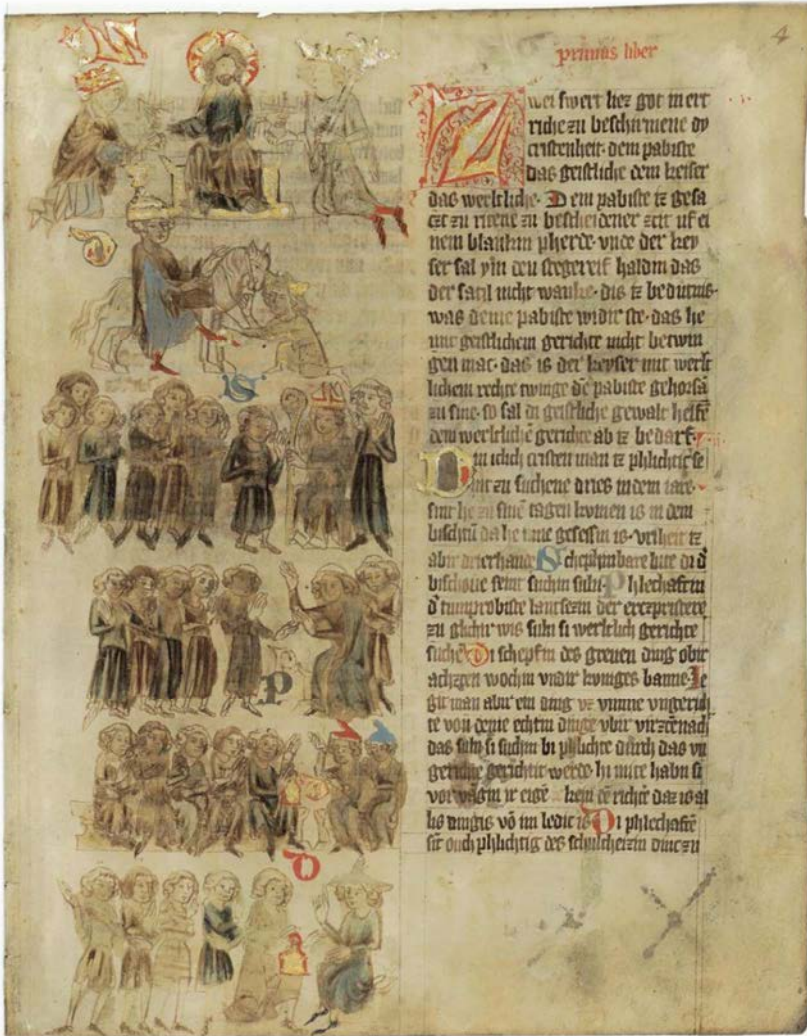 4
primus liber
Zwei swert liez got in ert
riche zu beschirmene dy
cristenheit. dem pabiste
das geistliche dem keiser
das wertliche. Dem pabiste iz gesa
czt zu ritene zu bescheidener zcit uf ei
nem blankin pherde. unde der key
ser sal ym den stegereif haldin das
der satil nicht wanke. dis iz bedutnis.
was deme pabiste widir ste. das he
mit geistlichem gerichte nicht betwin
gen mac. das is der keyser mit wertt
lichem rechte twinge de pabiste gehorsā
zu sine. so sal di geistliche gewalt helfē
dem wertlichē gerichte ab iz bedarf.
iclich cristen man iz phlichtic se
int zu suchene dries in dem iare.
sint he zu sinē tagen komen is in dem
bischtū da he inne gesessin is. vriheit iz
abir drierhand Schephinbare lute di d
bischoue seint suchin suln. Phlechaftin
d tumprobiste lantsezin der erczpristere
zu glichir wis suln si wertlich gerichte
suchē Di schepfin des greuen ding obir
achzgen wochin undir koniges banne. Le
git man abir ein ding vz umme ungerich
te von deme echtin dinge ubir virzcēnach
das suln si suchin bi phlichte durch das un
gerichte gerichtit werde. hi mite habn si
vor ir eigē kein richter daz is al
lis dingis vō im ledic is Di phlechaftē
sīt ouch phlichtig des schultheizin dinc zu
S
P
D